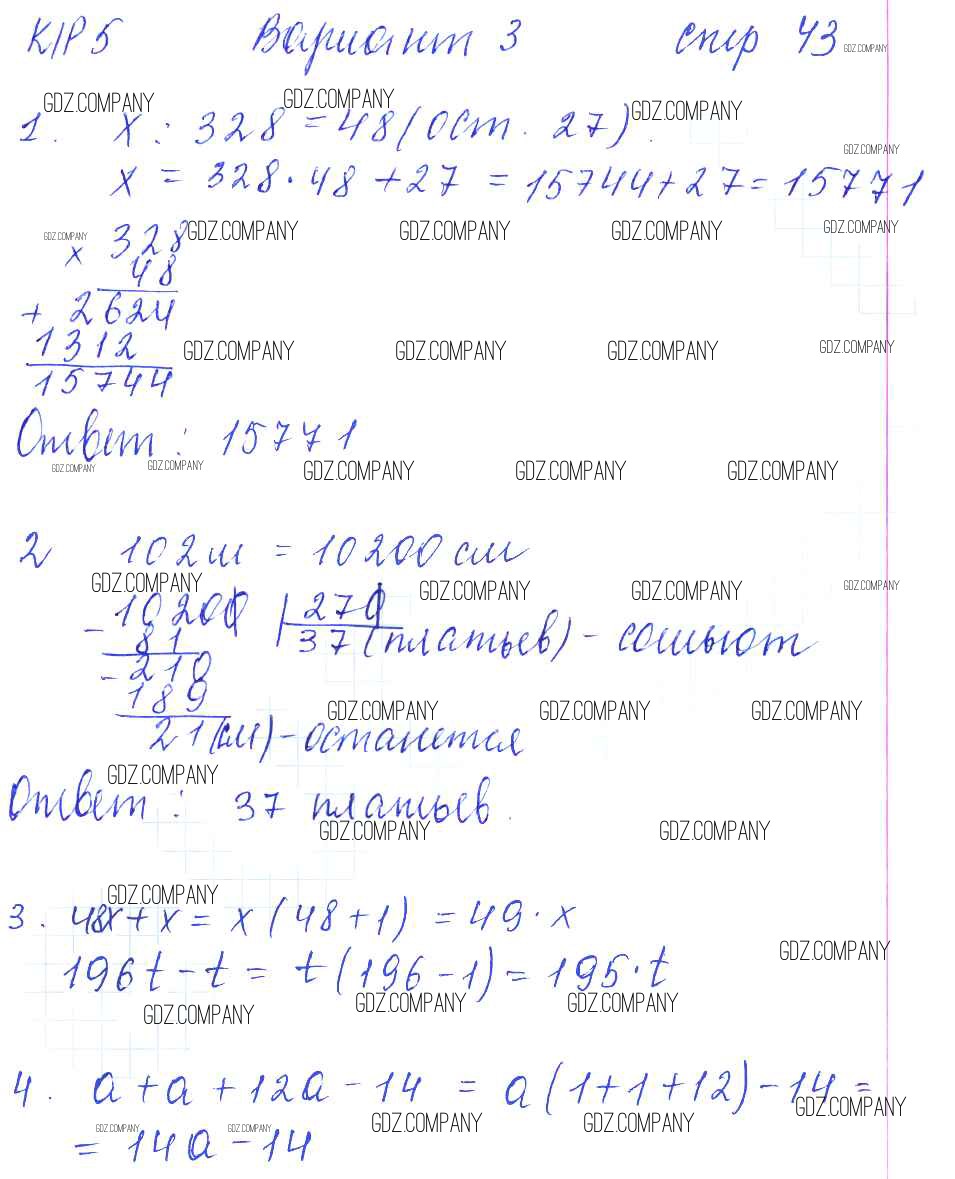 К/Р 5 Вариант 3 стр 43 GDZ.COMPANY
GDZ.COMPANY GDZ.COMPANY GDZ.COMPANY
1. x : 328 = 48 (ост. 27).
GDZ.COMPANY
x = 328 · 48 + 27 = 15744 + 27 = 15771
GDZ.COMPANY GDZ.COMPANY GDZ.COMPANY GDZ.COMPANY GDZ.COMPANY
x 328
48
+ 2624
1312 GDZ.COMPANY GDZ.COMPANY GDZ.COMPANY GDZ.COMPANY
15744
Ответ : 15771
GDZ.COMPANY GDZ.COMPANY GDZ.COMPANY GDZ.COMPANY GDZ.COMPANY
2 102 м = 10200 см
GDZ.COMPANY GDZ.COMPANY GDZ.COMPANY GDZ.COMPANY
- 10200 | 270
81 37 (платьев) - сошьют
- 210
189
GDZ.COMPANY GDZ.COMPANY GDZ.COMPANY
21 (см) - останется
GDZ.COMPANY
Ответ : 37 платьев.
GDZ.COMPANY GDZ.COMPANY
GDZ.COMPANY
3. 48x + x = x (48 + 1) = 49 · x
GDZ.COMPANY
196t - t = t (196 - 1) = 195 · t
GDZ.COMPANY GDZ.COMPANY GDZ.COMPANY
4. a + a + 12a - 14 = a (1 + 1 + 12) - 14 =
GDZ.COMPANY
GDZ.COMPANY GDZ.COMPANY GDZ.COMPANY GDZ.COMPANY
= 14a - 14